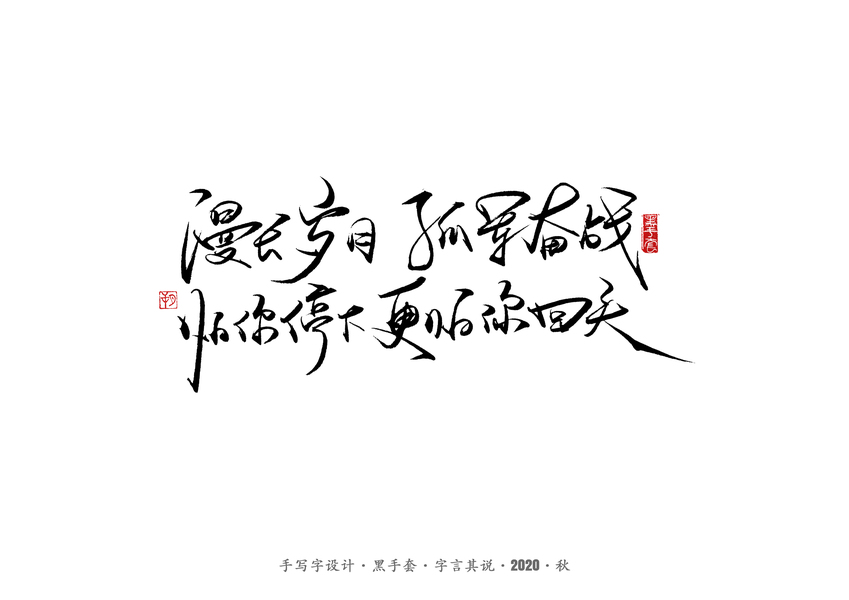 漫长岁月 孤军奋战
黑手套
怕你停下更怕你回天
手写字设计·黑手套·字言其说·2020·秋